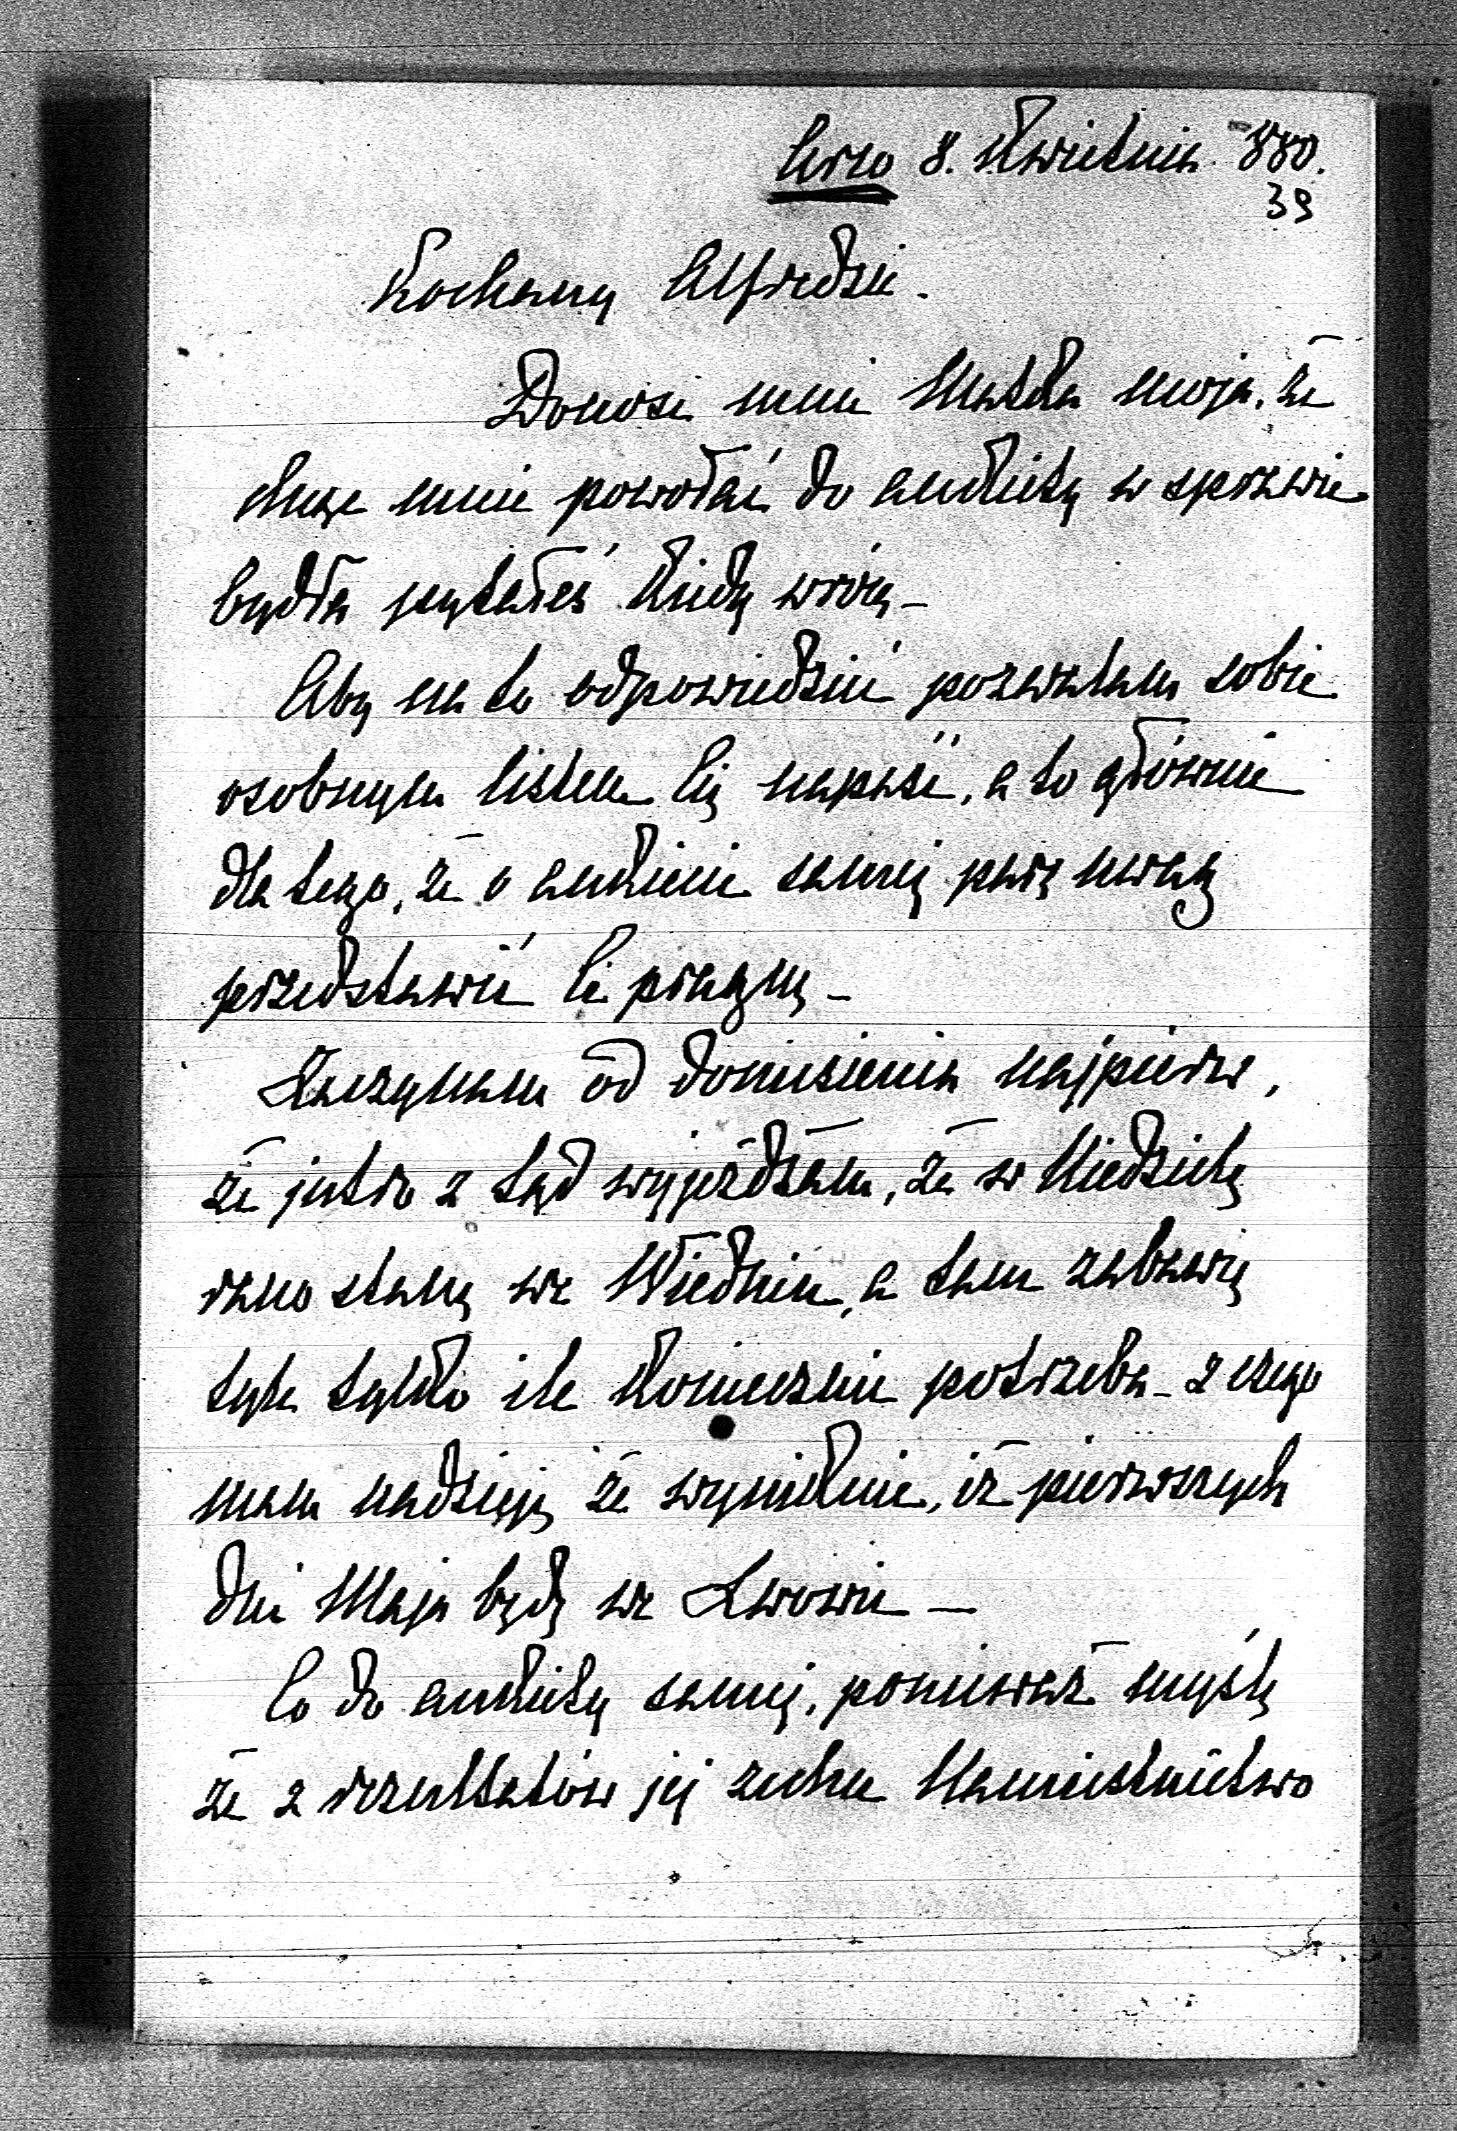 Arco 8. Kwietnia 880.
39
Kochany Alfredzie.
Donosi mnie Matka moja, że
chcąc mnie powołać do ankiety w sprawie
bydła pytałeś kiedy wrócę –
Aby na to odpowiedzieć pozwalam sobie
osobnym listem Cię napaść, a to głównie
dla tego, że o ankiecie samej parę uwag
przedstawić Ci pragnę –
Zaczynam od doniesienia najpierw,
że jutro z tąd wyjeżdżam, że w Niedzielę
rano stanę we Wiedniu, a tam zabawię
tyle tylko ile koniecznie potrzeba – z czego
mam nadzieję że wyniknie, iż pierwszych
dni Maja będę we Lwowie –
Co do ankiety samej, ponieważ myślę
że z rezultatów jej zechce Namiestnictwo